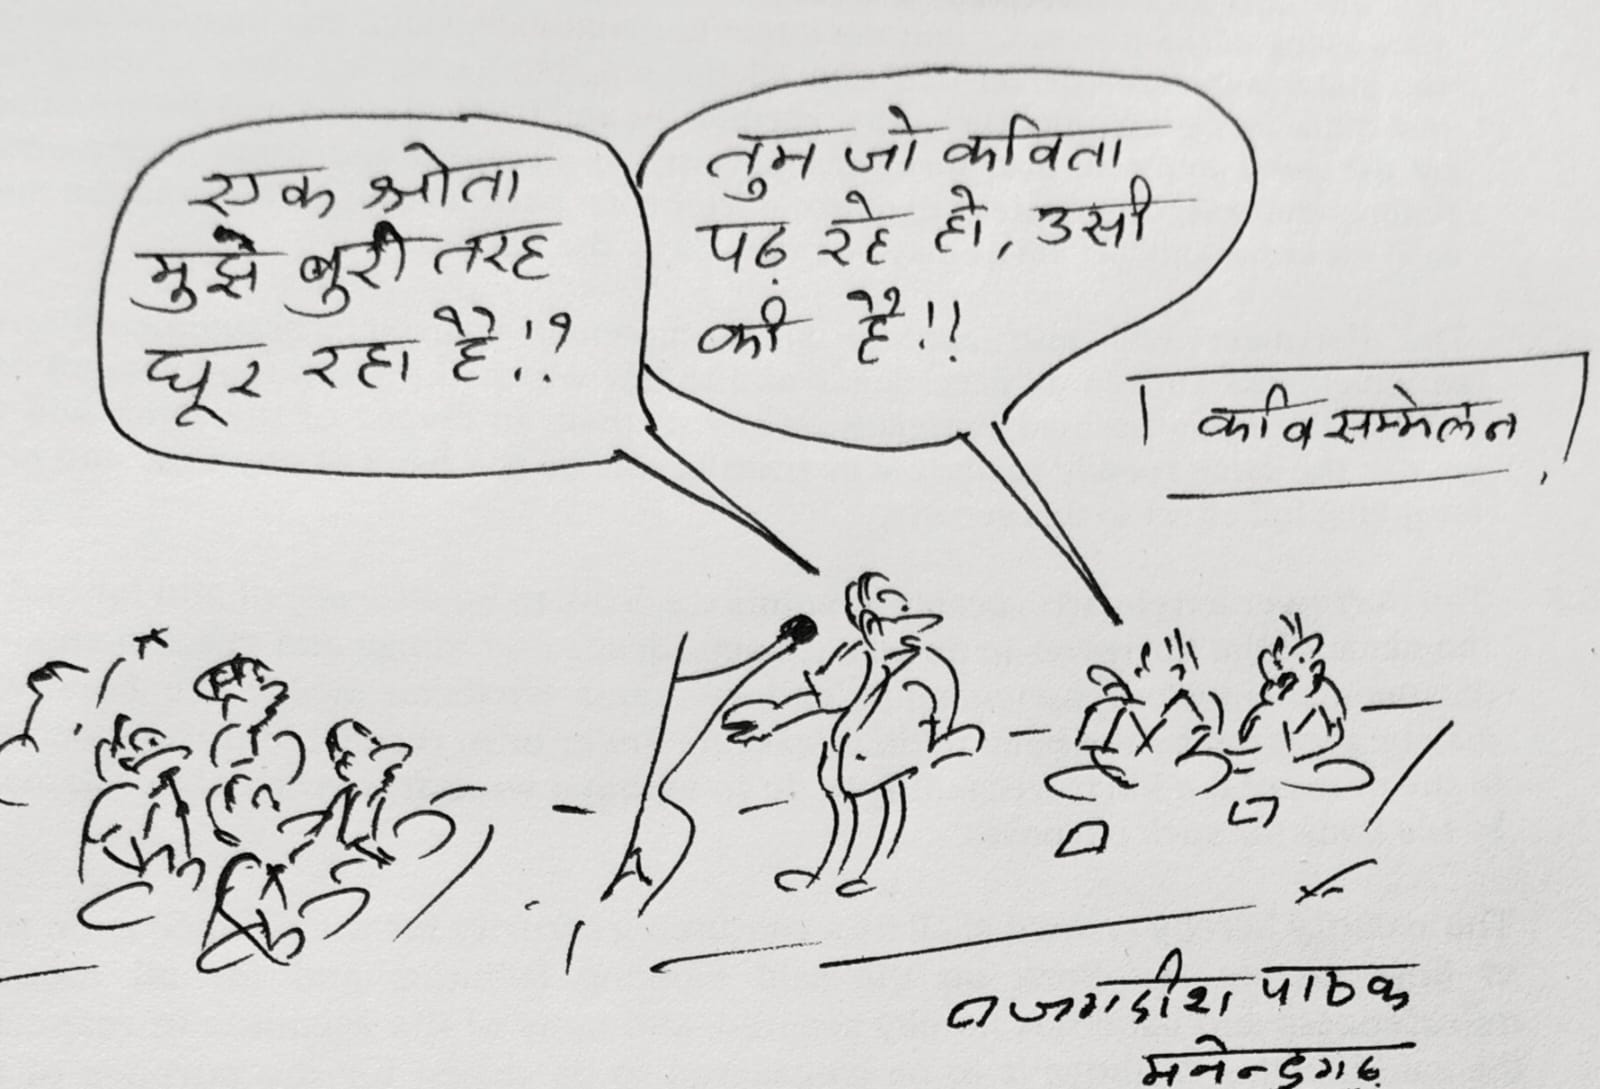 एक श्रोता
मुझे बुरी तरह
घूर रहा है!?
तुम जो कविता
पढ़ रहे हो, उसी
की है!!
कवि सम्मेलन
जगदीश पाठक
मनेन्द्रगढ़